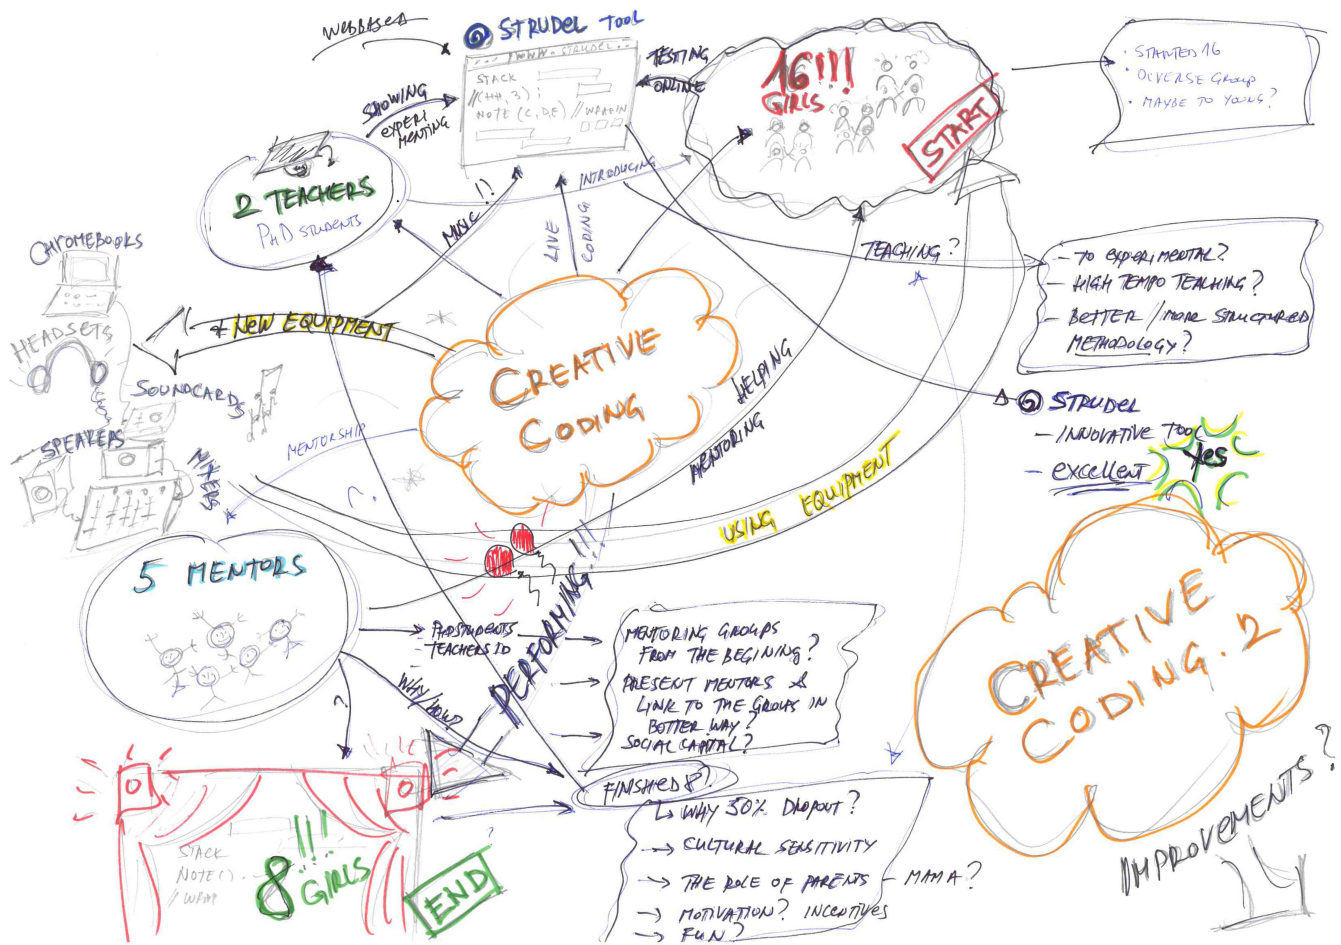 WEBBASED
STRUDEL TOOL
WWW. STRUDEL
STACK
NOTE (C,D,E) //
TESTING
ONLINE
SHOWING
EXPERI
MENTING
16!!!
GIRLS
START
· STARTED 16
· DIVERSE GROUP
· MAYBE TO YOUNG?
2 TEACHERS
PHD STUDENTS
INTRODUCING
MUSIC!!
LIVE
CODING
TEACHING?
- TO EXPERIMENTAL?
- HIGH TEMPO TEACHING?
- BETTER / MORE STRUCTURED
METHODOLOGY?
CHROMEBOOKS
HEADSETS
SOUNDCARDS
SPEAKERS
MIXERS
+ NEW EQUIPMENT
CREATIVE
CODING
HELPING
MENTORING
USING EQUIPMENT
MENTORSHIP
?
STRUDEL
- INNOVATIVE TOOL
- EXCELLENT
Yes
5 MENTORS
PHDSTUDENTS
TEACHERS ID
PERFORMING!!!
WHY/HOW?
?
MENTORING GROUPS
FROM THE BEGINING?
PRESENT MENTORS &
LINK TO THE GROUPS IN
BOTTER WAY?
SOCIAL CAPITAL?
CREATIVE
CODING. 2
IMPROVEMENTS?
FINISHED 8?
WHY 50% DROPOUT?
CULTURAL SENSITIVITY
THE ROLE OF PARENTS - MAMA?
MOTIVATION? INCENTIVES
FUN?
STACK
NOTE()
// WRAP
!!!
8 GIRLS
END